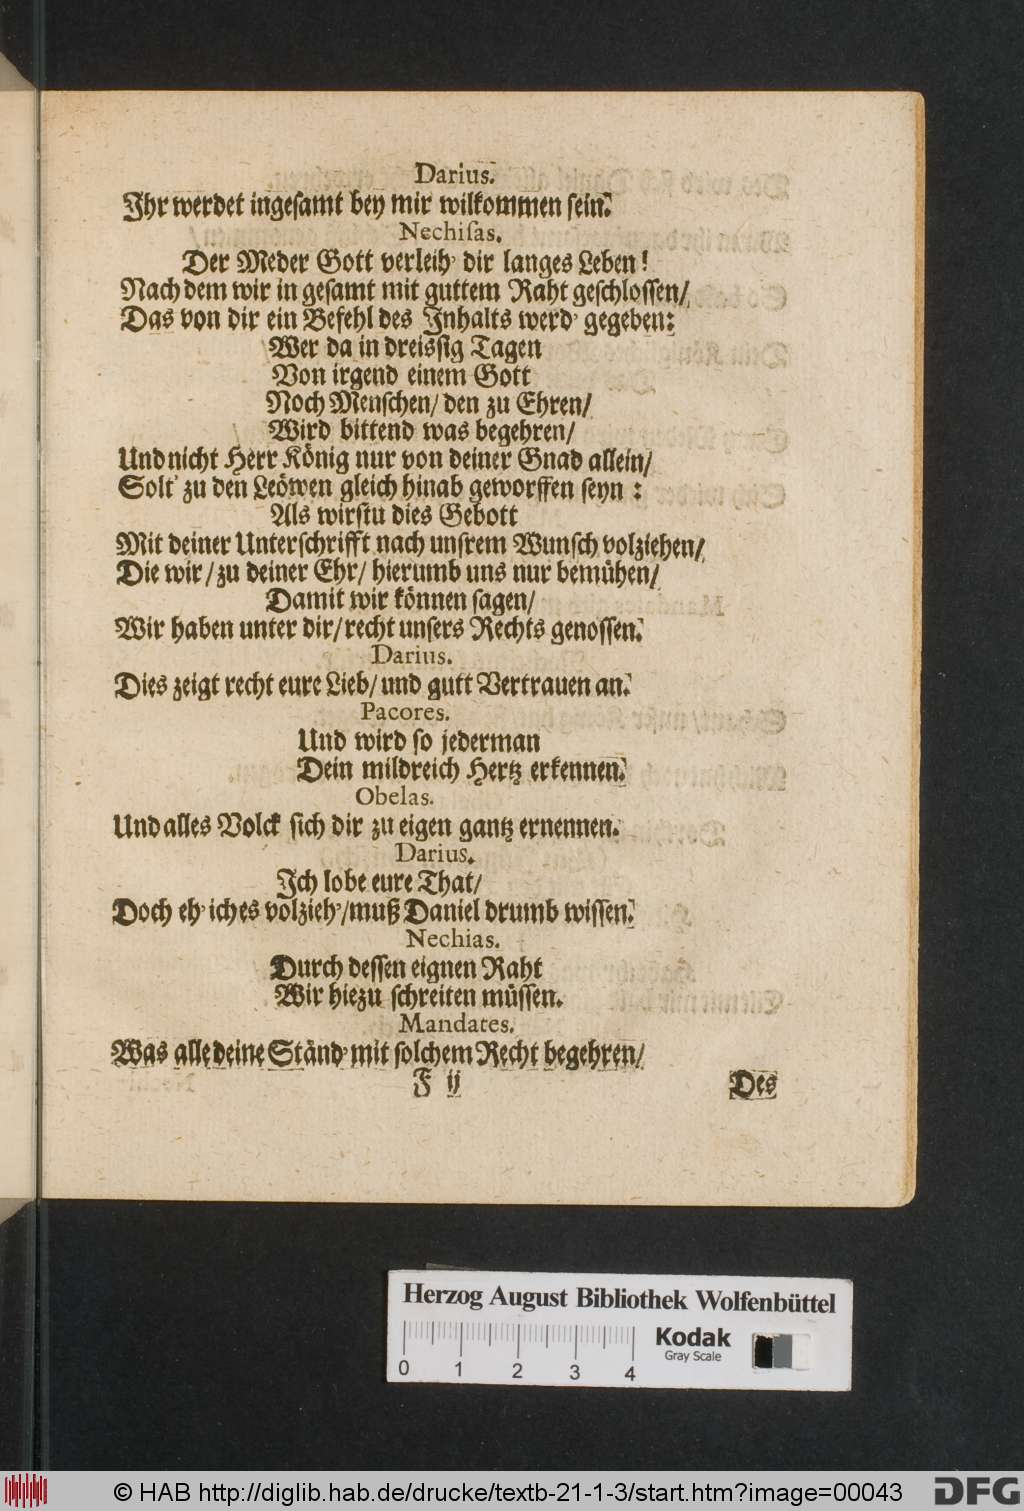 Darius.
Ihr werdet ingesamt bey mir wilkommen sein.
Nechisas.
Der Meder Gott verleih' dir langes Leben!
Nach dem wir in gesamt mit guttem Raht geschlossen/
Das von dir ein Befehl des Inhalts werd' gegeben:
Wer da in dreissig Tagen
Von irgend einem Gott
Noch Menschen/ den zu Ehren/
Wird bittend was begehren/
Und nicht Herr König nur von deiner Gnad allein/
Solt' zu den Leöwen gleich hinab geworffen seyn:
Als wirstu dies Gebott
Mit deiner Unterschrifft nach unsrem Wunsch volziehen/
Die wir/ zu deiner Ehr/ hierumb uns nur bemühen/
Damit wir können sagen/
Wir haben unter dir/ recht unsers Rechts genossen.
Darius.
Dies zeigt recht eure Lieb/ und gutt Vertrauen an.
Pacores.
Und wird so jederman
Dein mildreich Hertz erkennen.
Obelas.
Und alles Volck sich dir zu eigen gantz ernennen.
Darius.
Ich lobe eure That/
Doch eh' ich es volzieh'/ muß Daniel drumb wissen.
Nechias.
Durch dessen eignen Raht
Wir hiezu schreiten müssen.
Mandates.
Was alle deine Ständ' mit solchem Recht begehren/
F ij
Des
Herzog August Bibliothek Wolfenbüttel
Kodak
Gray Scale
0 1 2 3 4
© HAB http://diglib.hab.de/drucke/textb-21-1-3/start.htm?image=00043
DFG